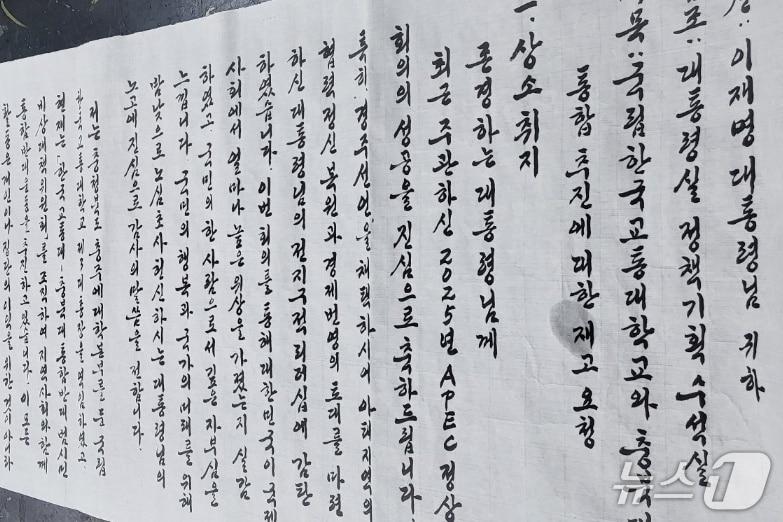 이재명 대통령님 귀하
조: 대통령실 정책기획 수석실
목: 국립한국교통대학교와 충북대
통합 추진에 대한 재고 요청
一. 상소취지
존경하는 대통령님께
최근 주관하신 2025년 APEC 정상
회의의 성공을 진심으로 축하드립니다.
특히, 경주선언을 채택하시어 아태지역의
협력정신 복원과 경제번영의 토대를 마련
하신 대통령님의 전지구적 리더십에 감탄
하였습니다. 이번 회의를 통해 대한민국이 국제
사회에서 얼마나 높은 위상을 가졌는지 실감
하였고, 국민의 한 사람으로서 깊은 자부심을
느낍니다. 국민의 행복과 국가의 미래를 위해
밤낮으로 노심초사 헌신하시는 대통령님의
노고에 진심으로 감사의 말씀을 전합니다.
저는 충청북도 충주에 대학본부를 둔 국립
한국교통대학교 제3대 총장을 역임하였고,
현재는 「한국교통대-충북대 통합반대 범시민
비상대책위원회」를 조직하여 지역사회와 함께
통합반대운동을 추진하고 있습니다. 이 모든
활동은 개인이나 집단의 이익을 위한 것이 아니라
뉴스1